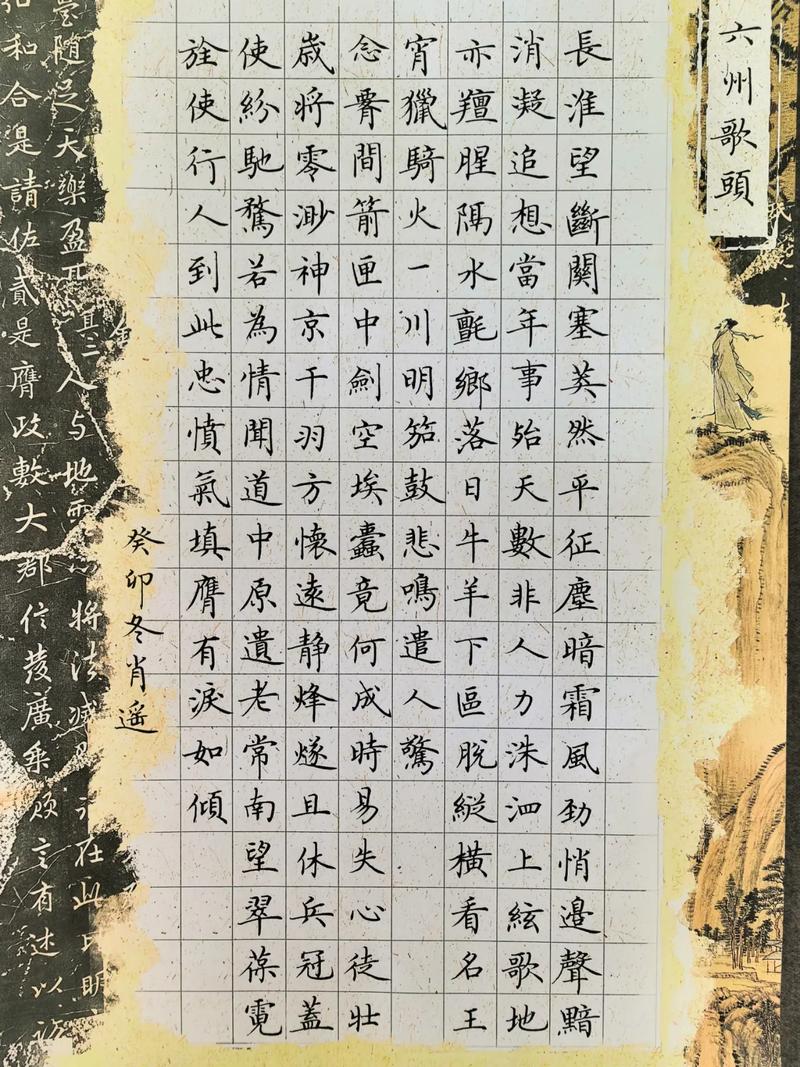 六州歌頭
長淮望斷關塞莽然平征塵暗霜風勁悄邊聲黯
消凝追想當年事殆天數非人力洙泗上絃歌地
亦羶腥隔水氈鄉落日牛羊下區脫縱橫看名王
宵獵騎火一川明笳鼓悲鳴遣人驚
念腰間箭匣中劍空埃蠹竟何成時易失心徒壯
歲將零渺神京干羽方懷遠靜烽燧且休兵冠蓋
使紛馳騖若為情聞道中原遺老常南望翠葆霓
旌使行人到此忠憤氣填膺有淚如傾
癸卯冬肖遥
隨足天樂盈耳其三人与地
和合是請佐貳是膺政數大郡信茂廣乘
言有述以